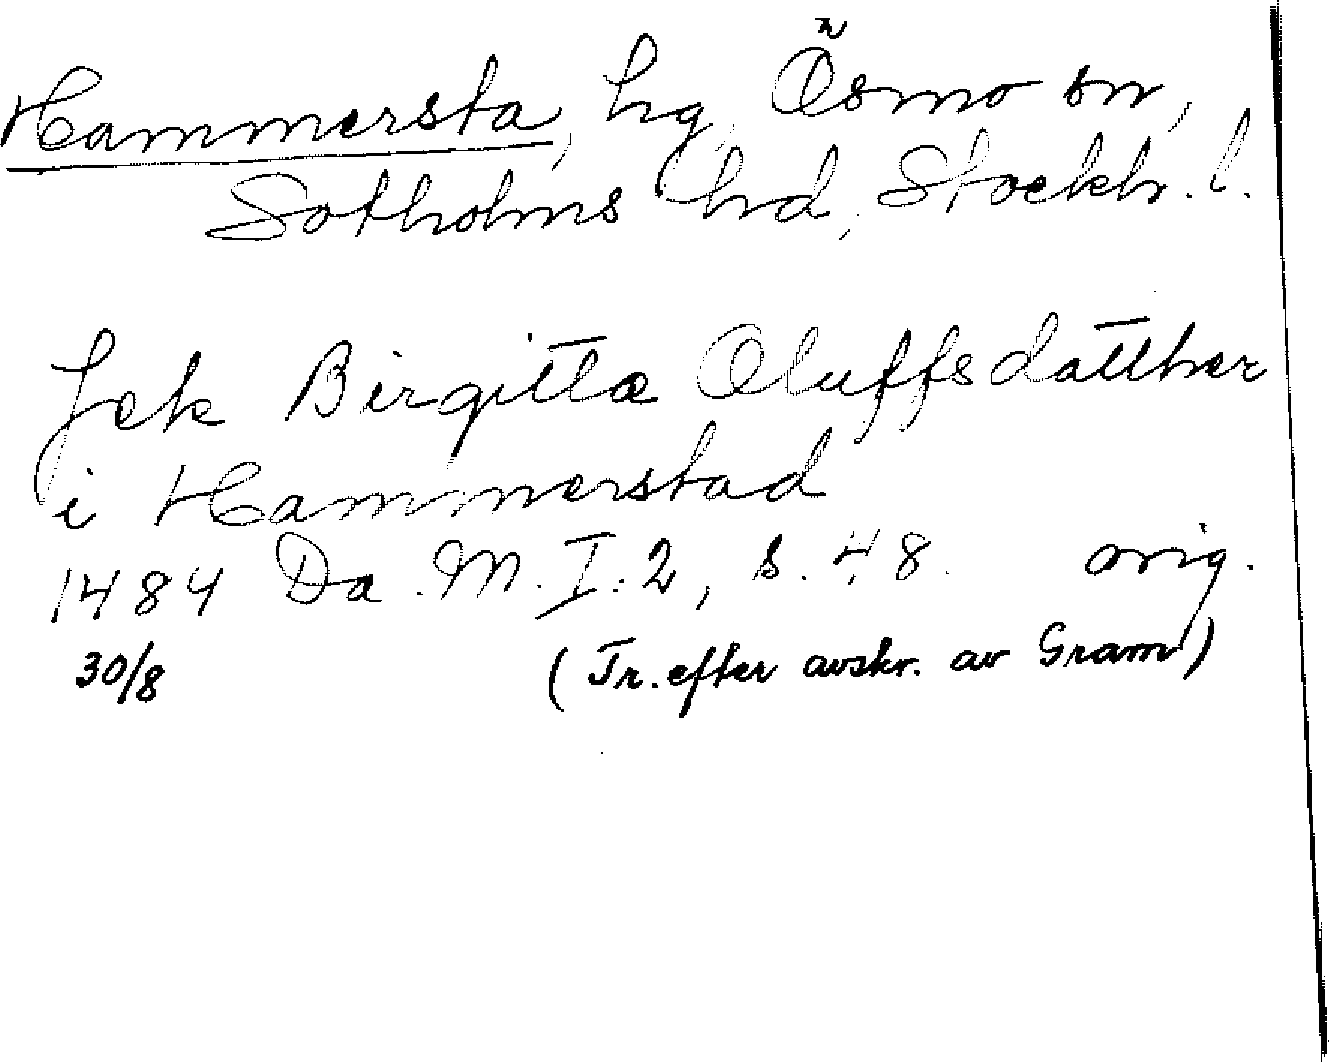 Hammersta, hg, Ösmo sn,
Sotholms hd, Stockh. l.
Jek Birgitte Oluffsdatther
i Hammerstad
1484 Da. M. I: 2, s. 48. orig.
30/8 (Tr. efter avskr. av Gram)